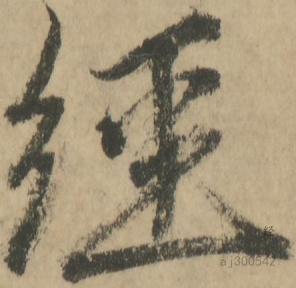 經
经
aj300542